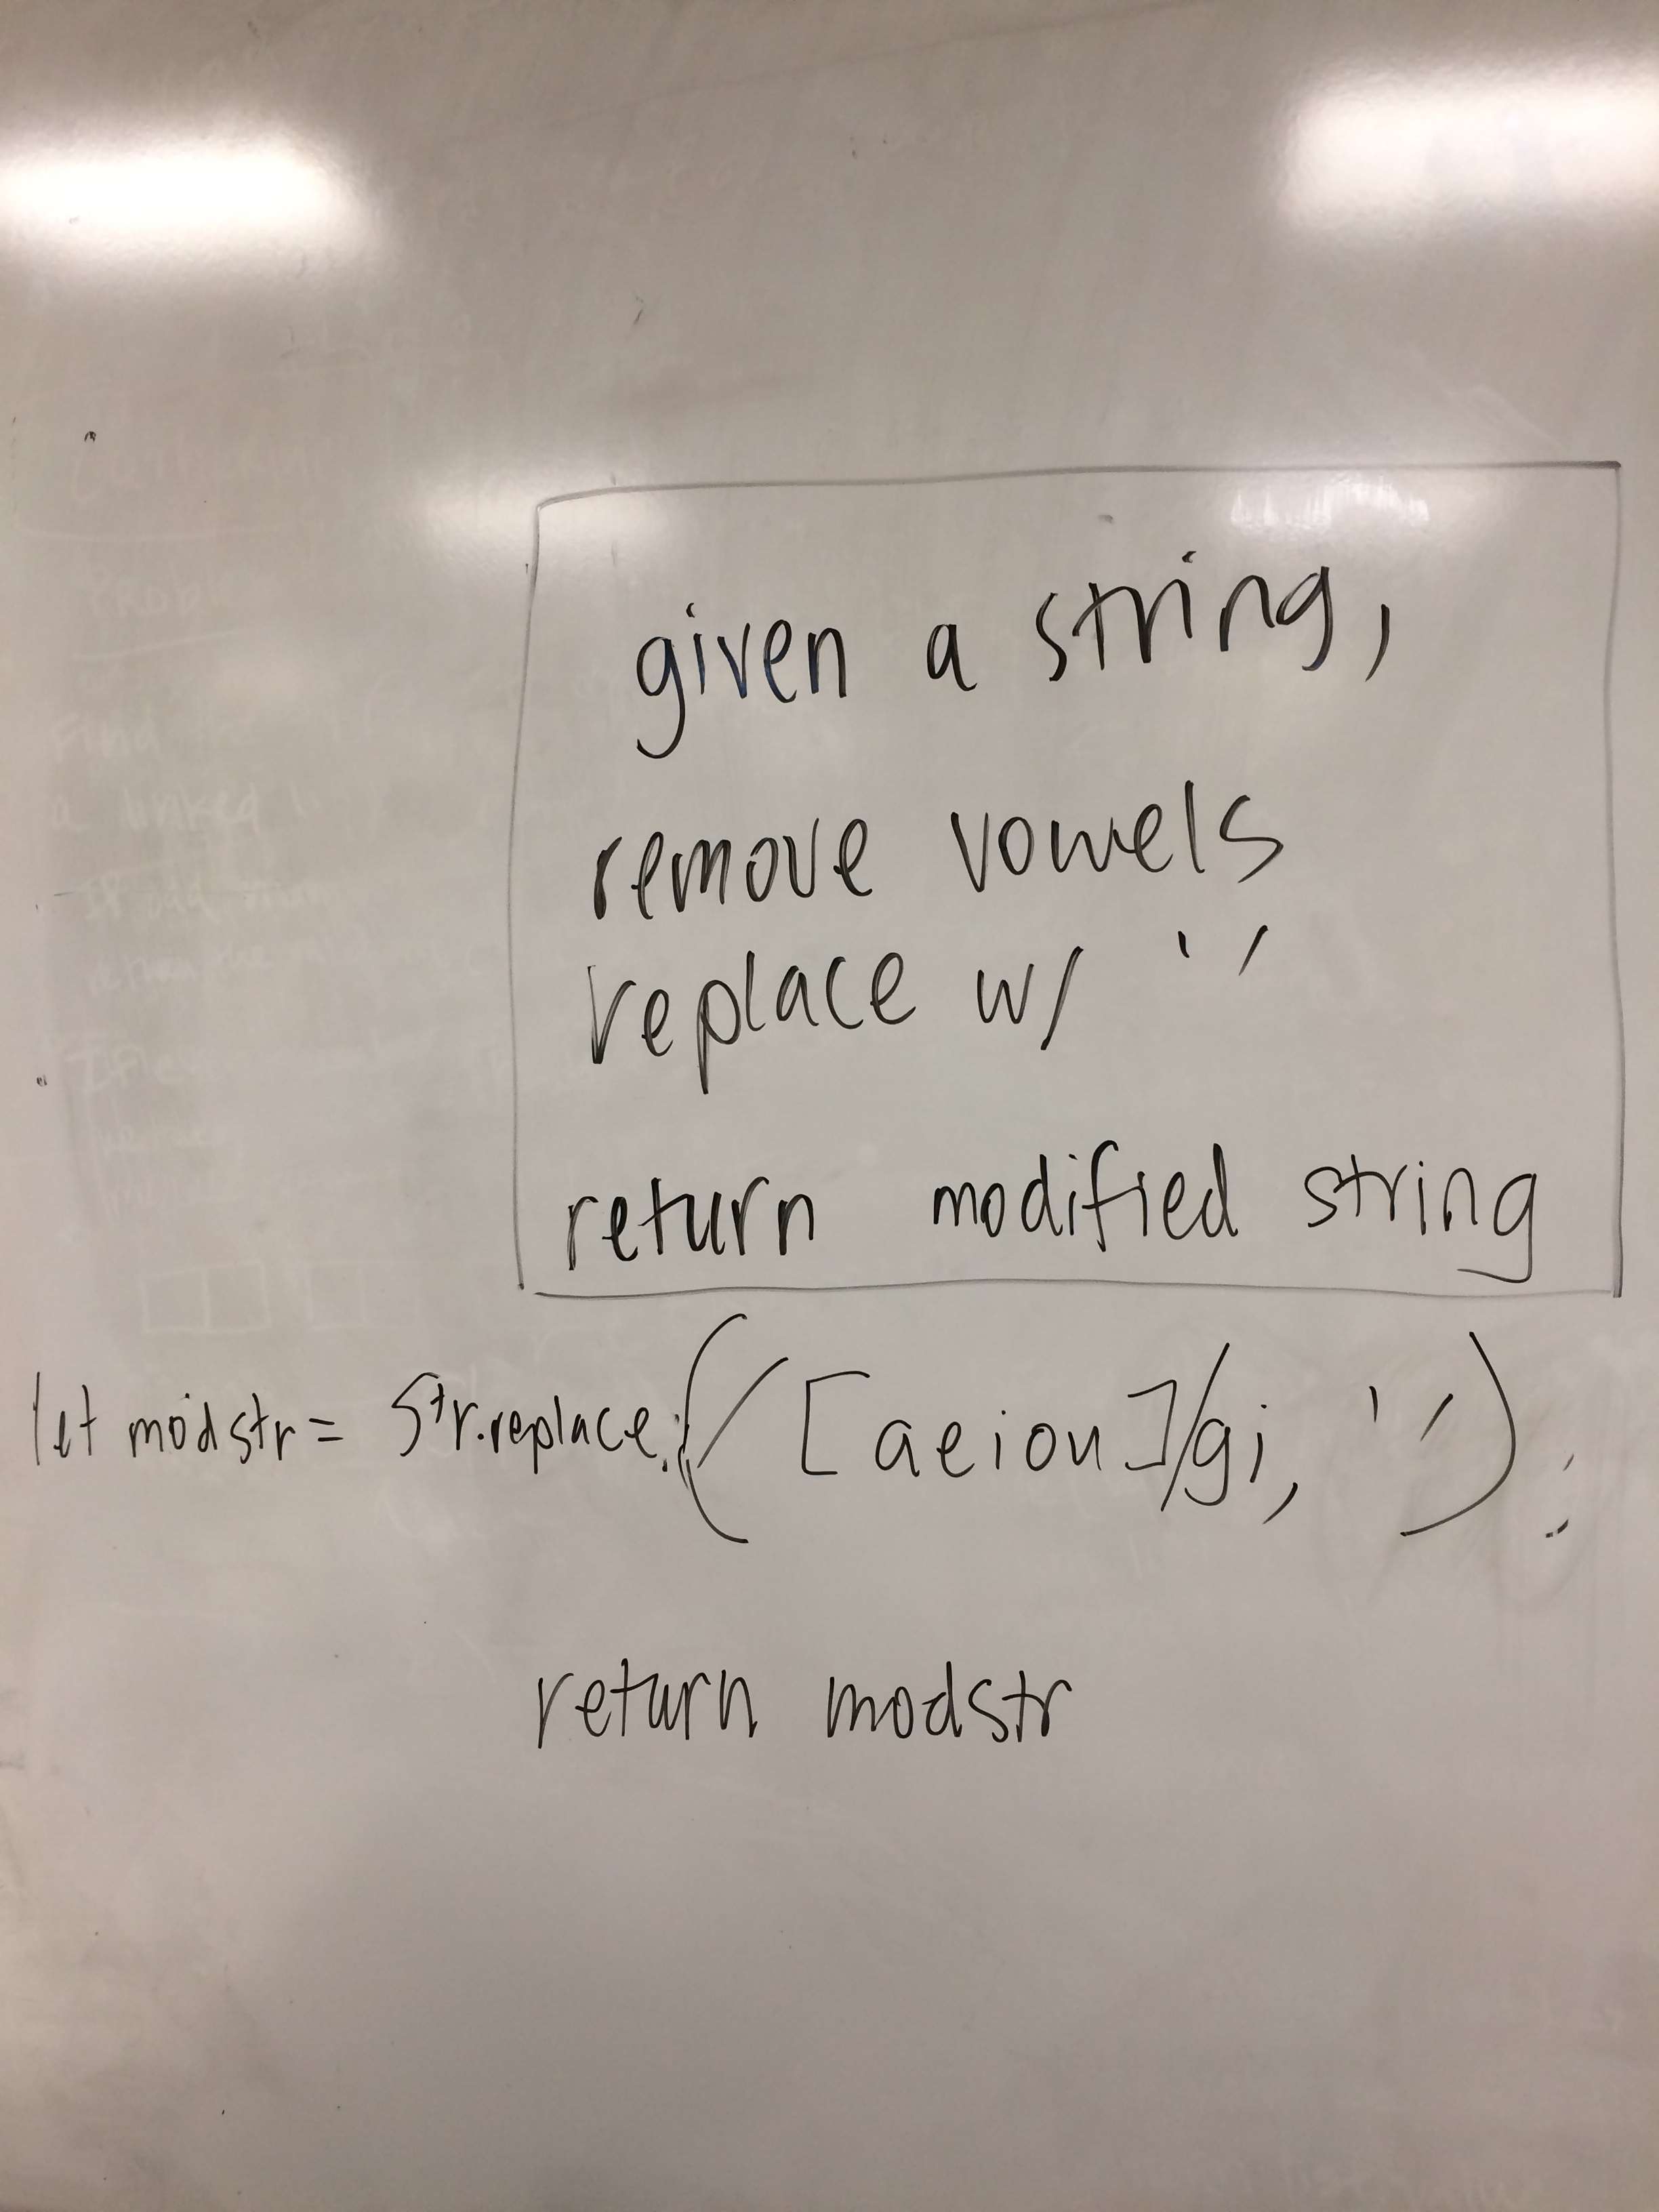 given a string,
remove vowels
replace w/ ' '
return modified string
let modstr = Str.replace(/[aeiou]/gi, ' ');
return modstr